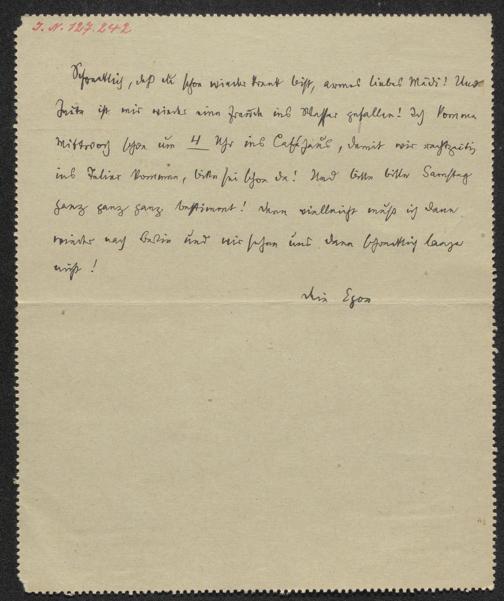 I. N. 127.242
Schrecklich, daß du schon wieder krank bist, armes liebes Mädi! Und
heute ist mir wieder eine Freude ins Wasser gefallen! Ich komme
Mittwoch schon um 4 Uhr ins Caféhaus, damit wir rechtzeitig
ins Atelier kommen, bitte sei schon da! Und bitte bitte Samstag
ganz ganz ganz bestimmt! denn vielleicht muß ich dann
wieder nach Berlin und wir sehen uns dann schrecklich lange
nicht!
dein Egon